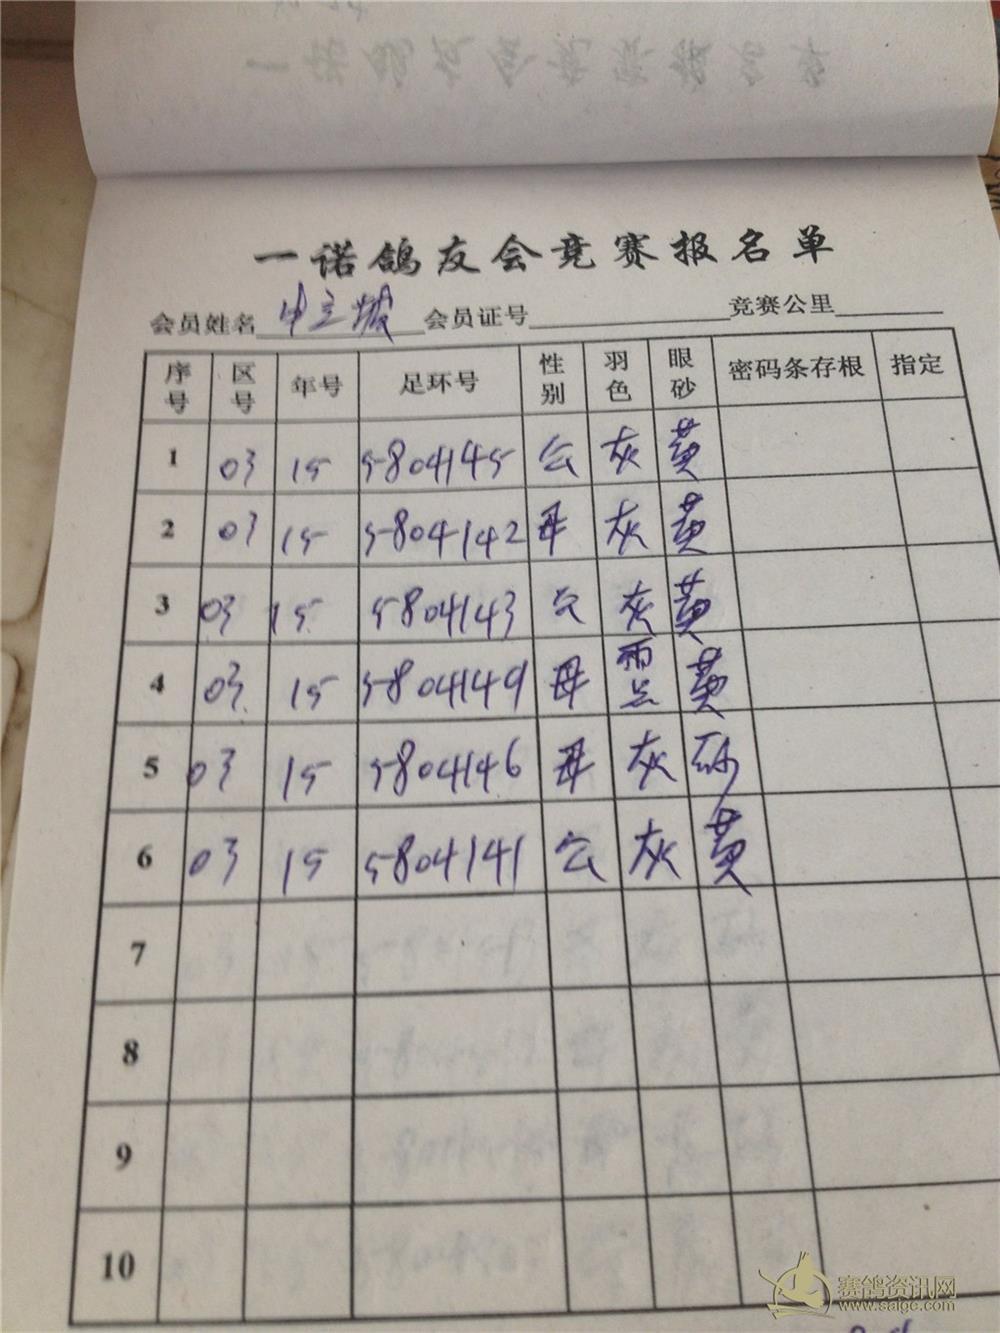 一诺鸽友会竞赛报名单
会员姓名 申立坡 会员证号 竞赛公里
序号 区号 年号 足环号 性别 羽色 眼砂 密码条存根 指定
1 03 15 5804145 公 灰 黄
2 03 15 5804142 母 灰 黄
3 03 15 5804143 公 灰 黄
4 03 15 5804149 母 雨点 黄
5 03 15 5804146 母 灰 砂
6 03 15 5804141 公 灰 黄
7
8
9
10
赛鸽资讯网
www.saigc.com